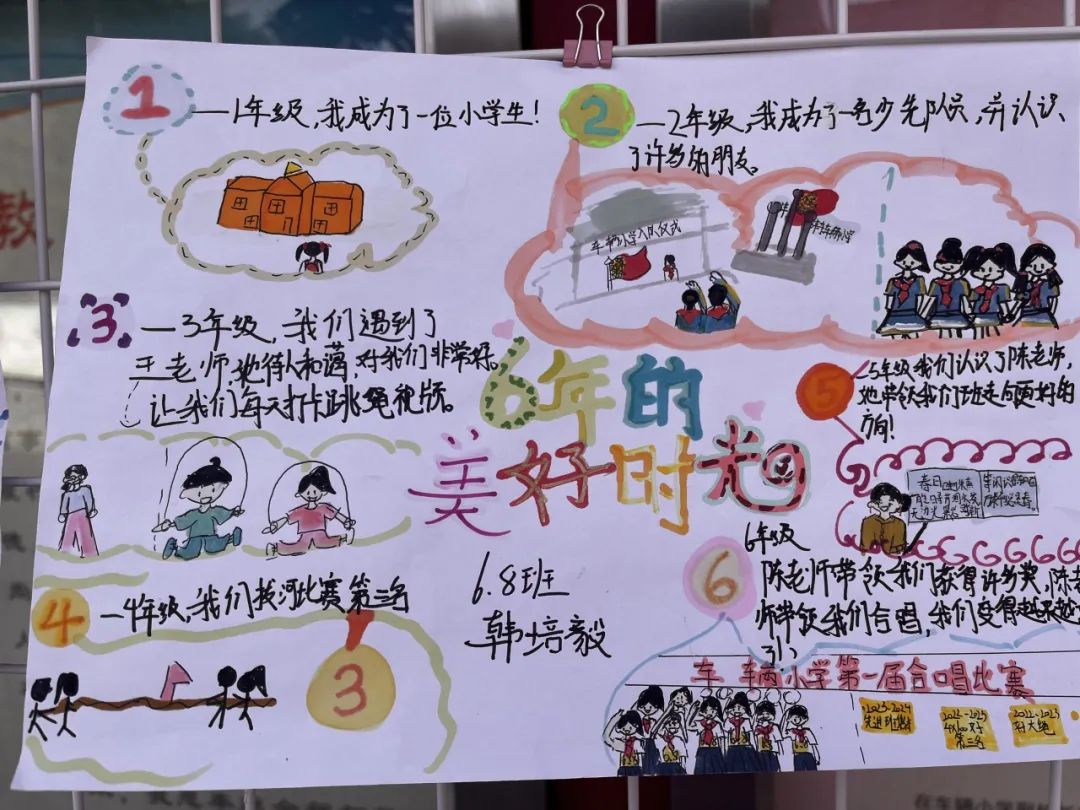 1
—1年级,我成为了一位小学生!
2
—2年级,我成为了一名少先队员,并认识
了许多的朋友。
车辆小学入队仪式
3
—3年级,我们遇到了
王老师,她待人和蔼,对我们非常好。
让我们每天打卡跳绳视频。
6年的
美好时光
5
—5年级我们认识了陈老师,
她带领我们班走向更好的
方向!
春日
4
—4年级,我们拔河比赛第三名
3
6.8班
韩培毅
6年级
6
陈老师带领我们获得许多奖,陈老
师带领我们合唱,我们变得越来越
了!
车辆小学第一届合唱比赛
2023-2024
先进班集体
第三名
2022-2023
教